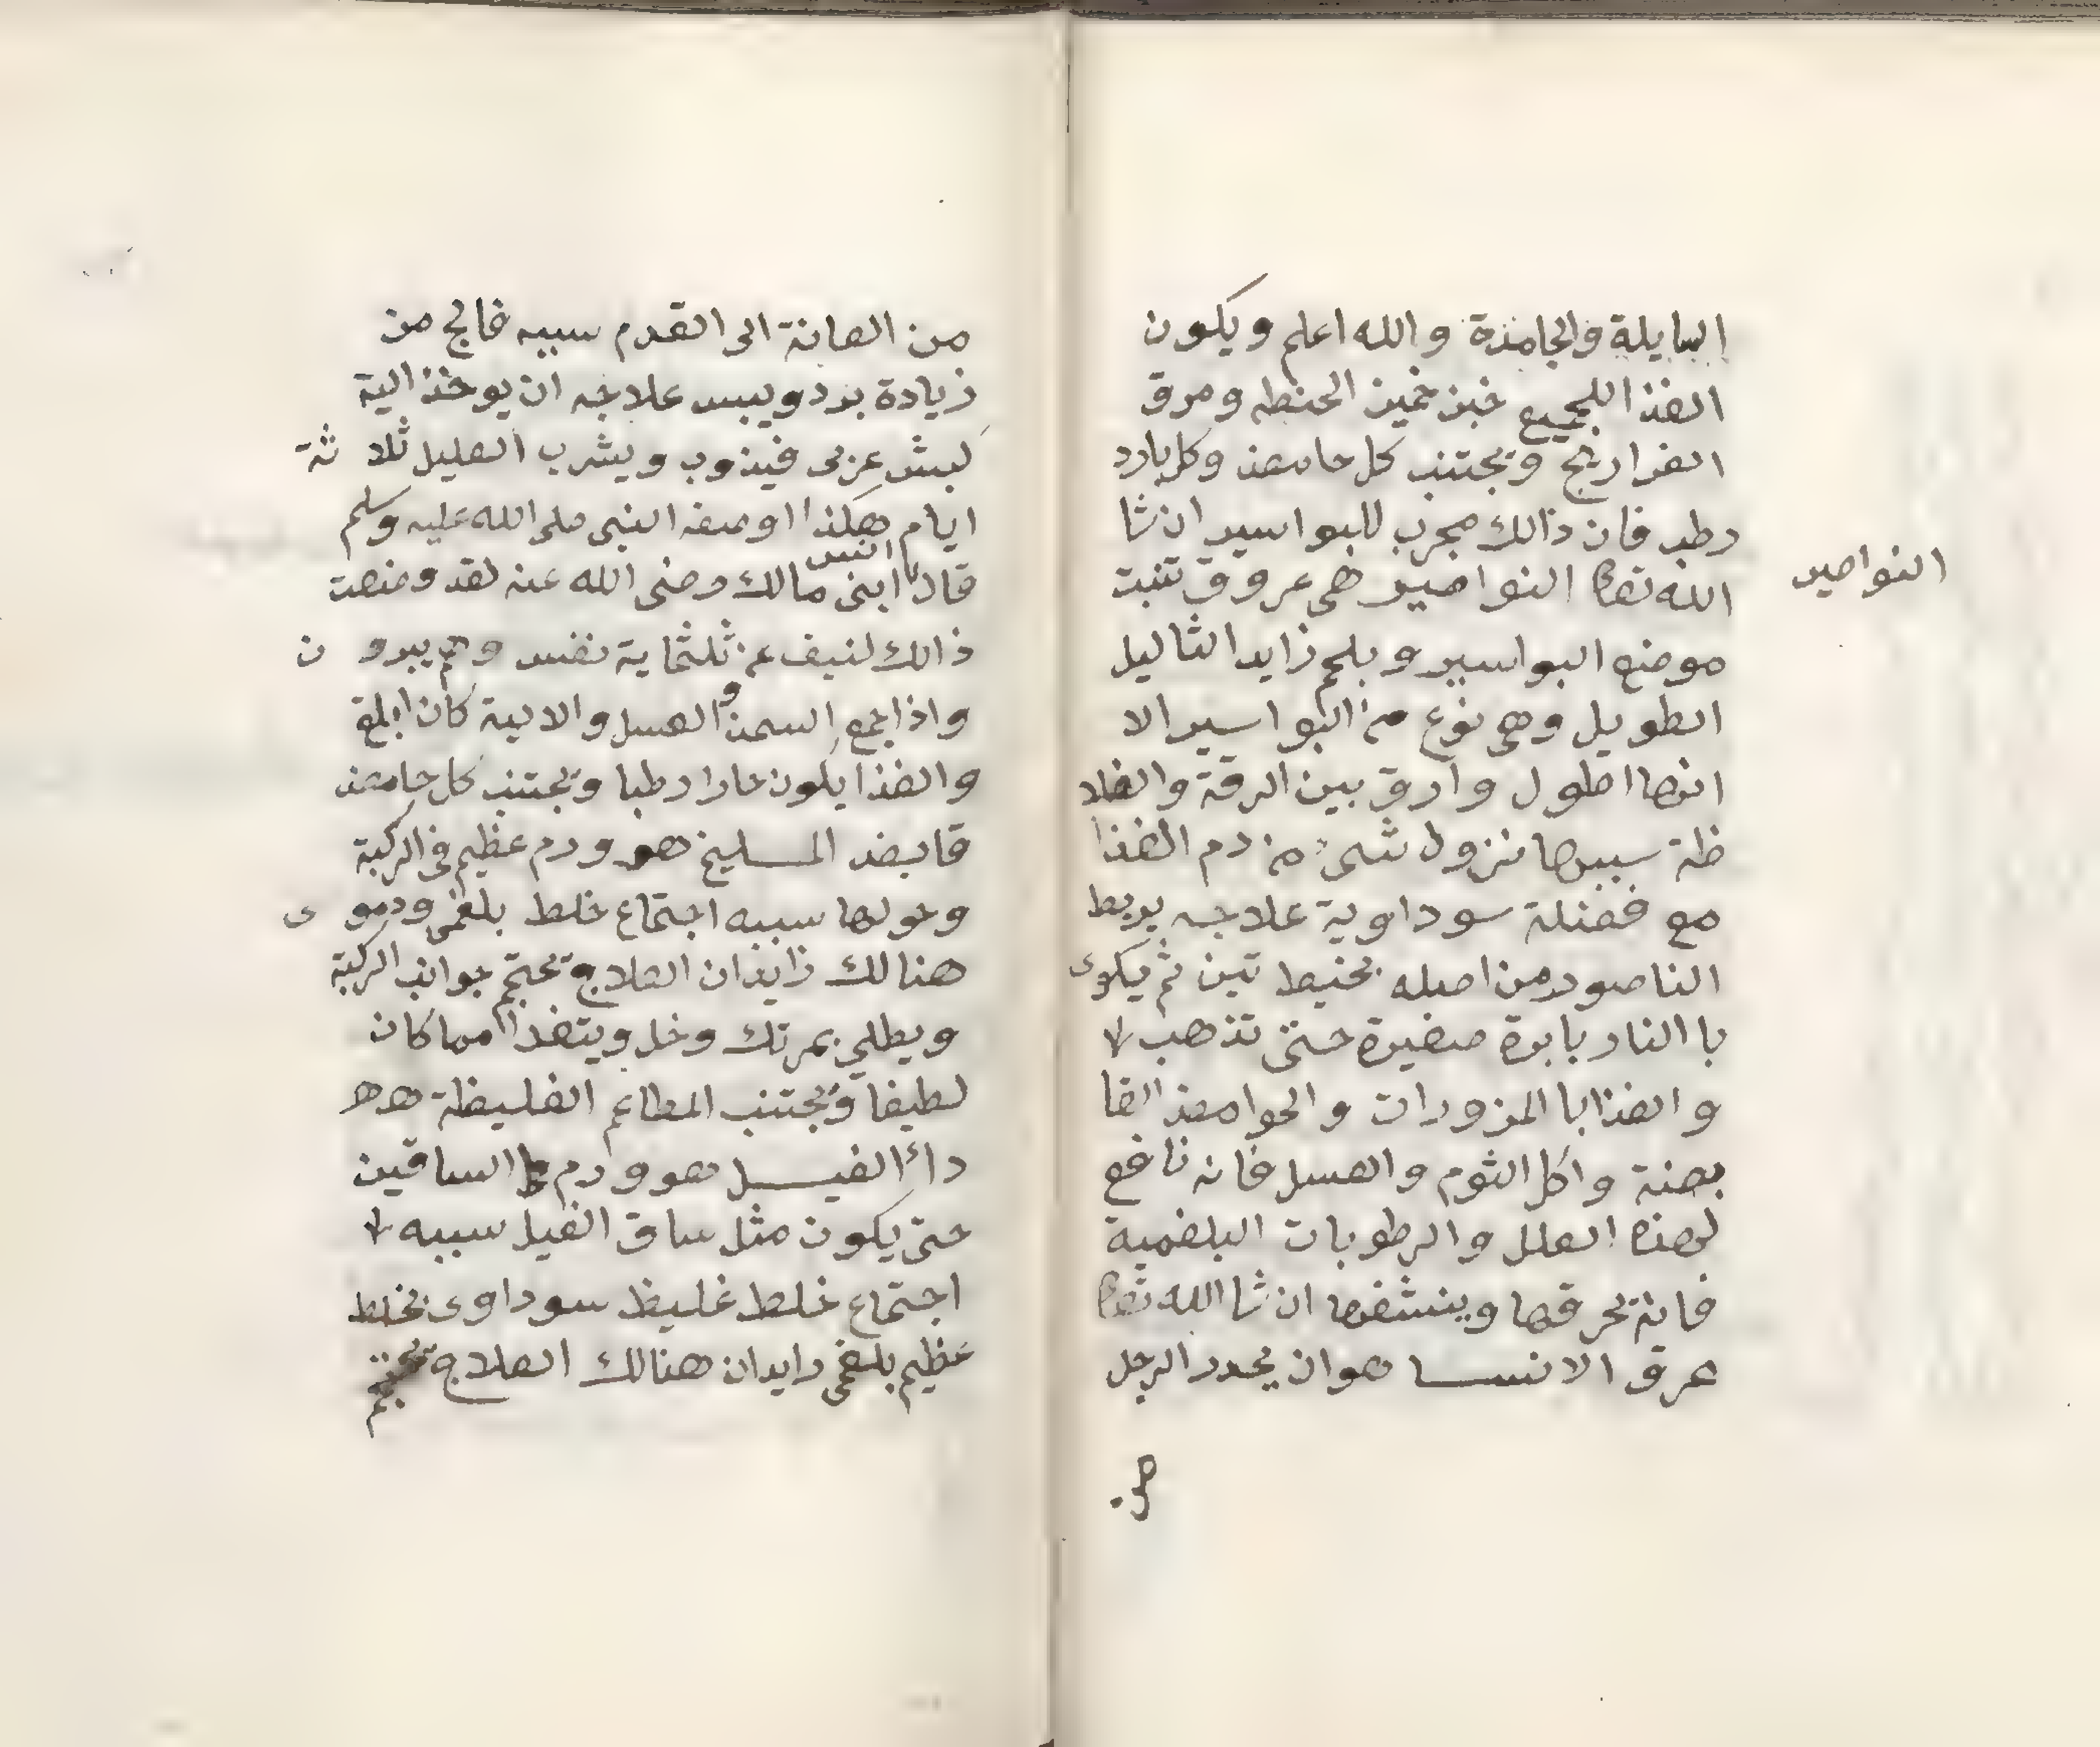 السايلة والجامدة والله اعلم ويكون
الغذا للجميع خبز خمير الحنطه ومرق
الفراريج ويجتنب كل حامض وكل بارد
رطب فان ذالك مجرب للبواسير ان شا
الله تعا النواصير هى عروق تنبت
النواصير
موضع البواسير وبلحم زايد الثاليل
الطويل وهى نوع من البواسير الا
انها اطول وارق بين الرقة والغلا
ظة سببها نزول شىء من دم الغذا
مع فضلة سوداوية علاجه يربط
الناصور من اصله بخيط تين ثم يكوى
با النار بابرة صغيرة حتى تذهب
والغذا با المزورات والحوامض القا
بضة واكل الثوم والعسل فانه نافع
لهذه العلل والرطوبات البلغمية
فانه يحرقها وينشفها ان شا الله تعا
عرق الانسا هو ان يخدر الرجل
من
من العانة الى القدم سببه فالج من
زيادة برد ويبس علاجه ان يوخذ الية
كبش عربى فيذوب ويشرب العليل ثلا ثة
ايام هكذا اوصفه النبى صلى الله عليه وسلم
قال انس ابنى مالك رضى الله عنه لقد وصفت
ذالك لنيف عن ثلثماية نفس وهم يبرو ن
واذا جمع السمن والعسل والالية كان ابلغ
والغذا يكون حارا رطبا ويجتنب كل حامض
قابض المسليخ هو ورم عظيم فى الركبة
وحولها سببه اجتماع خلط بلغمى ودمو ى
هنالك زايدان العلاج تحتجم جوانب الركبة
ويطلى بمرتك وخل ويتغدا مما كان
لطيفا ويجتنب المطاعم الغليظة هـ هـ
دائ الفيل هو ورم الساقين
حتى يكون مثل ساق الفيل سببه
اجتماع خلط غليظ سوداوى بخلط
عظيم بلغمى زايدان هنالك العلاج تحتجم